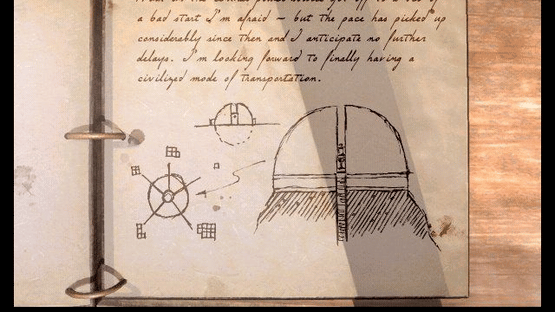 a bad start I'm afraid – but the pace has picked up
considerably since then and I anticipate no further
delays. I'm looking forward to finally having a
civilized mode of transportation.